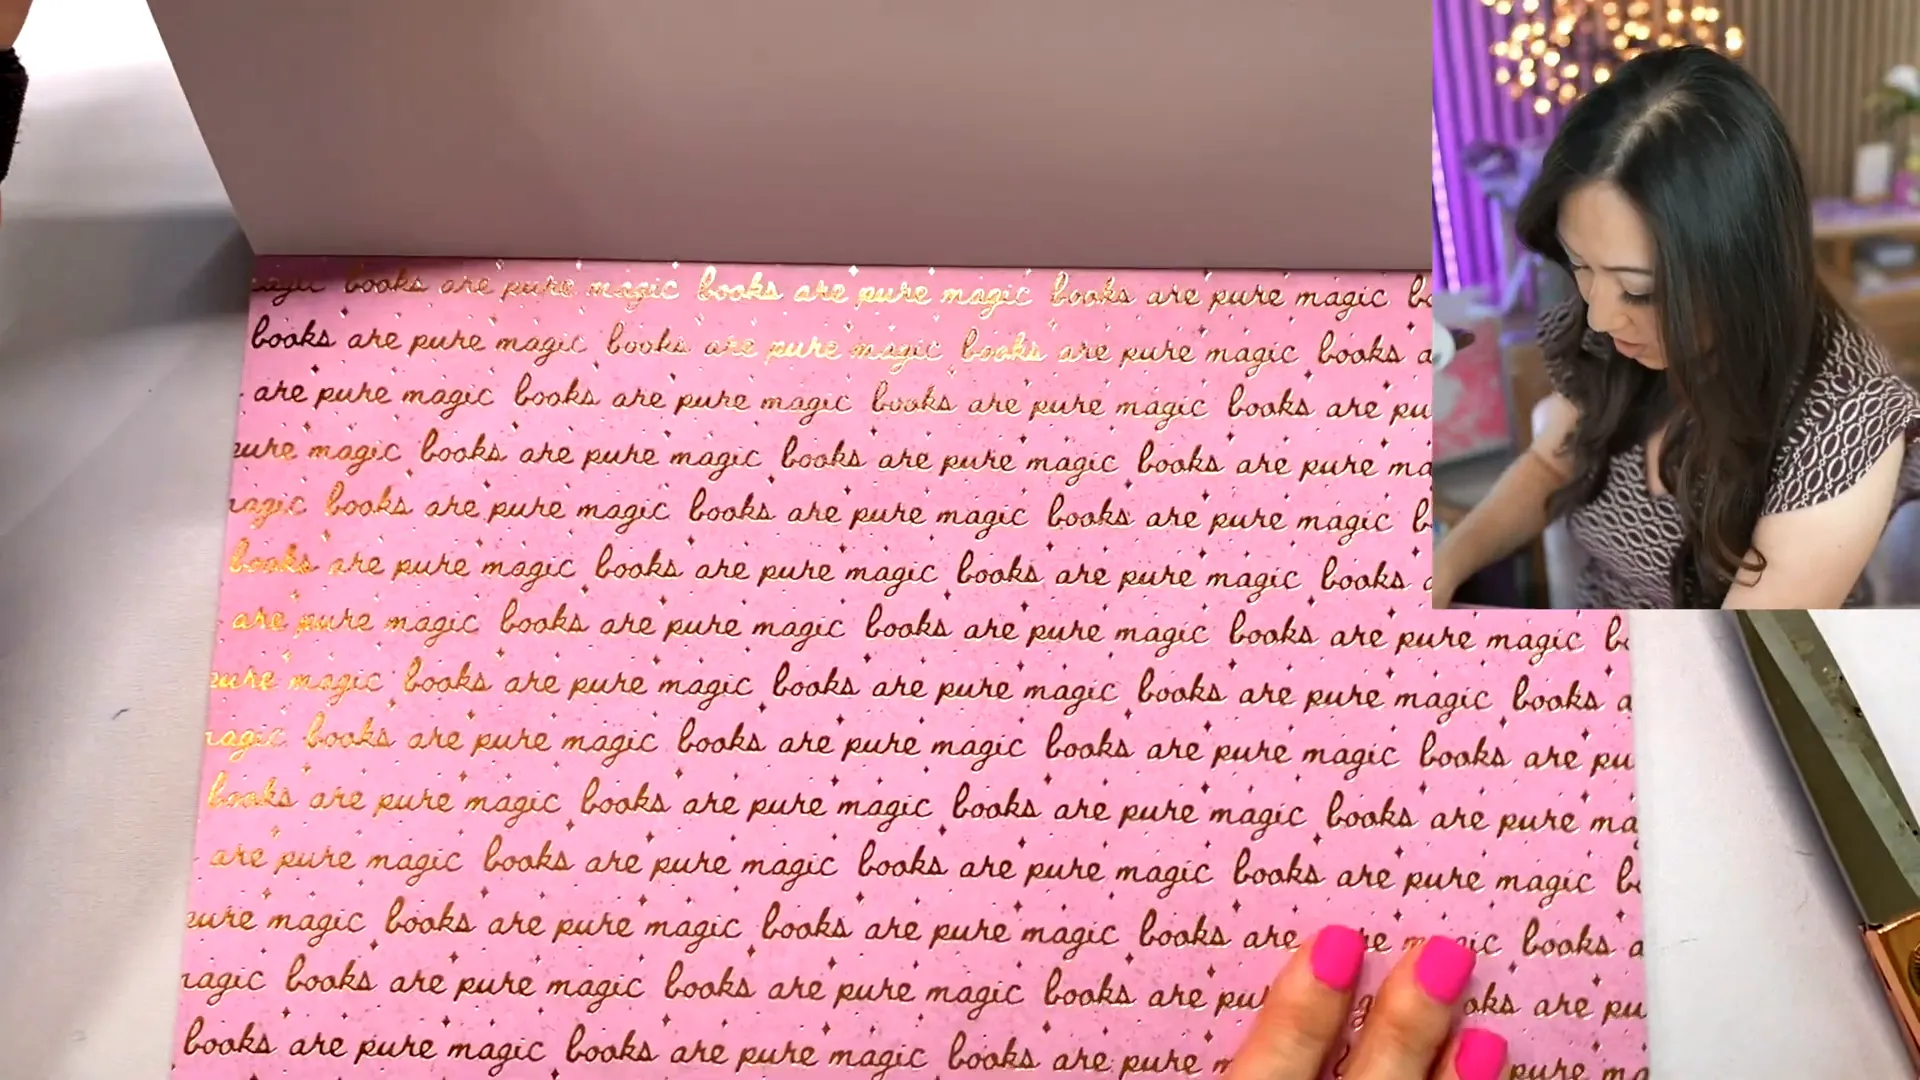 magic books are pure magic books are pure magic books are pure magic
books are pure magic books are pure magic books are pure magic books
are pure magic books are pure magic books are pure magic books are
pure magic books are pure magic books are pure magic books are pure
magic books are pure magic books are pure magic books are pure magic
books are pure magic books are pure magic books are pure magic books
are pure magic books are pure magic books are pure magic books are pure magic
pure magic books are pure magic books are pure magic books are pure magic books
magic books are pure magic books are pure magic books are pure magic books are
books are pure magic books are pure magic books are pure magic books are pure
are pure magic books are pure magic books are pure magic books are pure magic
pure magic books are pure magic books are pure magic books are books
magic books are pure magic books are pure magic books are are
books are pure magic books are pure magic books are pure pure